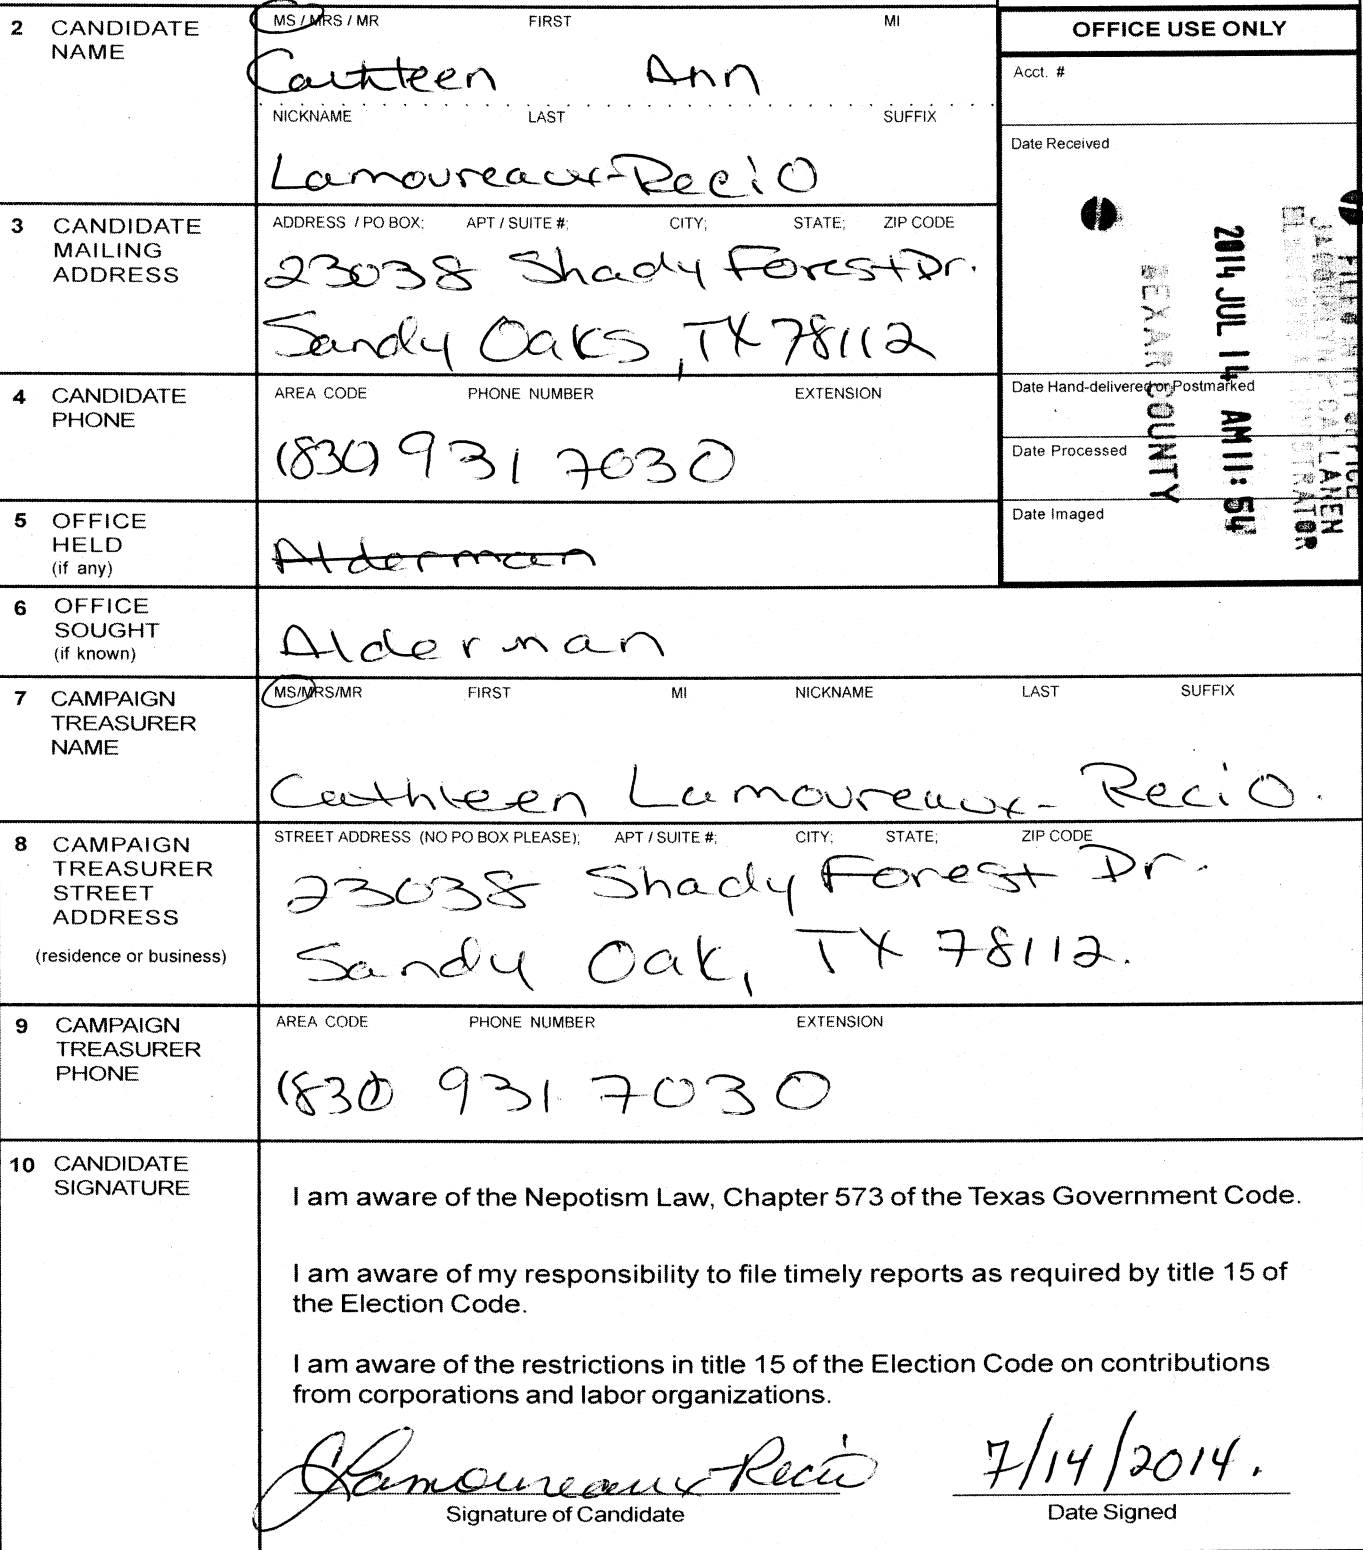 2 CANDIDATE NAME
MS / MRS / MR FIRST MI
Cathleen Ann
NICKNAME LAST SUFFIX
Lamoureaux-Recio
OFFICE USE ONLY
Acct. #
Date Received
2014 JUL 14 AM 11:54
BEXAR COUNTY
Date Hand-delivered or Postmarked
Date Processed
Date Imaged
3 CANDIDATE MAILING ADDRESS
ADDRESS / PO BOX; APT / SUITE #; CITY; STATE; ZIP CODE
23038 Shady Forest Dr.
Sandy Oaks, TX 78112
4 CANDIDATE PHONE
AREA CODE PHONE NUMBER EXTENSION
(830) 931 7030
5 OFFICE HELD (if any)
Alderman
6 OFFICE SOUGHT (if known)
Alderman
7 CAMPAIGN TREASURER NAME
MS/MRS/MR FIRST MI NICKNAME LAST SUFFIX
Cathleen Lamoureaux-Recio.
8 CAMPAIGN TREASURER STREET ADDRESS
(residence or business)
STREET ADDRESS (NO PO BOX PLEASE); APT / SUITE #; CITY; STATE; ZIP CODE
23038 Shady Forest Dr.
Sandy Oak, TX 78112.
9 CAMPAIGN TREASURER PHONE
AREA CODE PHONE NUMBER EXTENSION
(830) 931 7030
10 CANDIDATE SIGNATURE
I am aware of the Nepotism Law, Chapter 573 of the Texas Government Code.
I am aware of my responsibility to file timely reports as required by title 15 of
the Election Code.
I am aware of the restrictions in title 15 of the Election Code on contributions
from corporations and labor organizations.
CLamoureaux-Recio 7/14/2014.
Signature of Candidate Date Signed